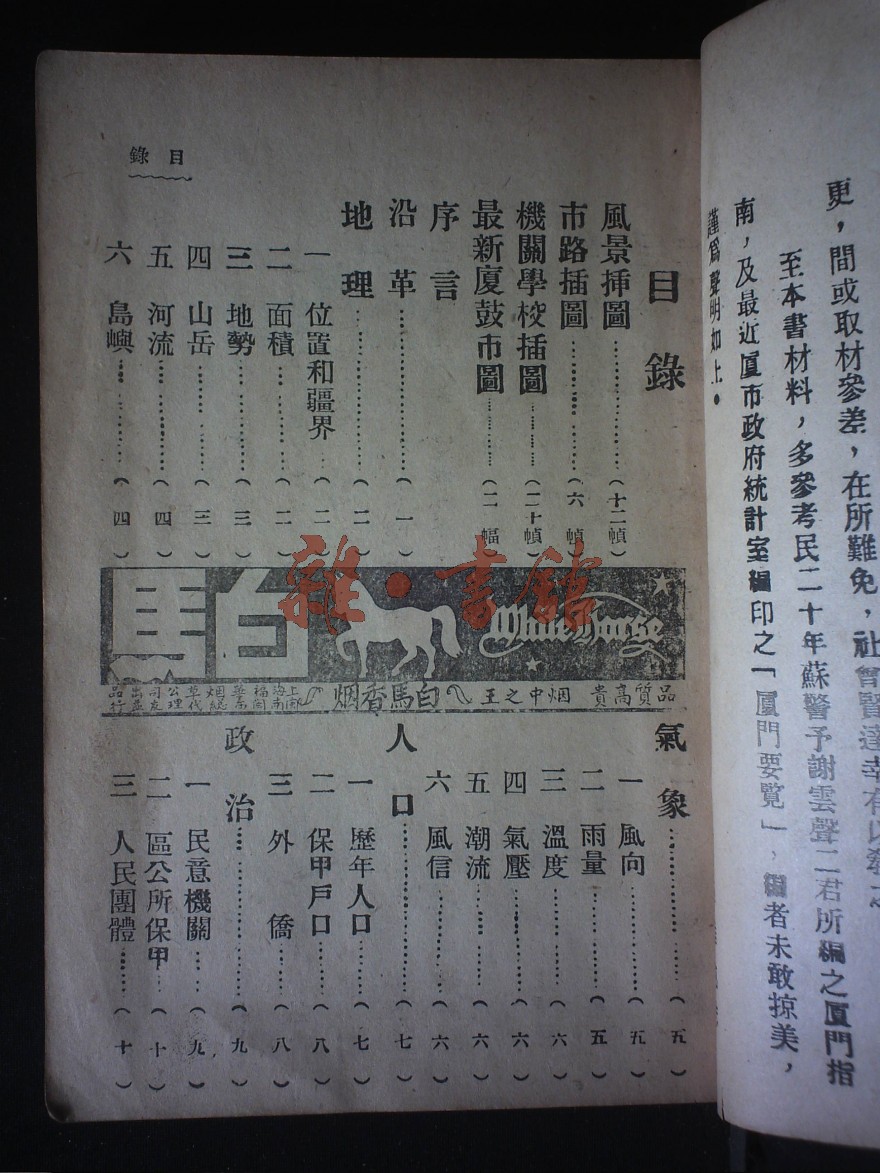 更，間或取材參差，在所難免，社會賢達幸有以教之
至本書材料，多參考民二十年蘇警予謝雲聲二君所編之厦門指
南，及最近厦市政府統計室編印之「厦門要覧」，編者未敢掠美，
謹爲聲明如上。
目錄
目錄
風景揷圖…………（十二幀）
市路插圖…………（六幀）
機關學校插圖…………（二十幀）
最新廈鼓市圖…………（二幅）
序言
沿革…………（一）
地理…………（二）
一 位置和疆界…（二）
二 面積…………（二）
三 地勢…………（三）
四 山岳…………（三）
五 河流…………（四）
六 島嶼…………（四）
白馬
White Horse
品質高貴 烟中之王
白馬香烟
雜·書館
氣象…………（五）
一 風向…………（五）
二 雨量…………（五）
三 溫度…………（六）
四 氣壓…………（六）
五 潮流…………（六）
六 風信…………（六）
人口…………（七）
一 歷年人口…………（七）
二 保甲戶口…………（八）
三 外僑…………（八）
政治…………（九）
一 民意機關……（九）
二 區公所保甲…（十）
三 人民團體……（十）